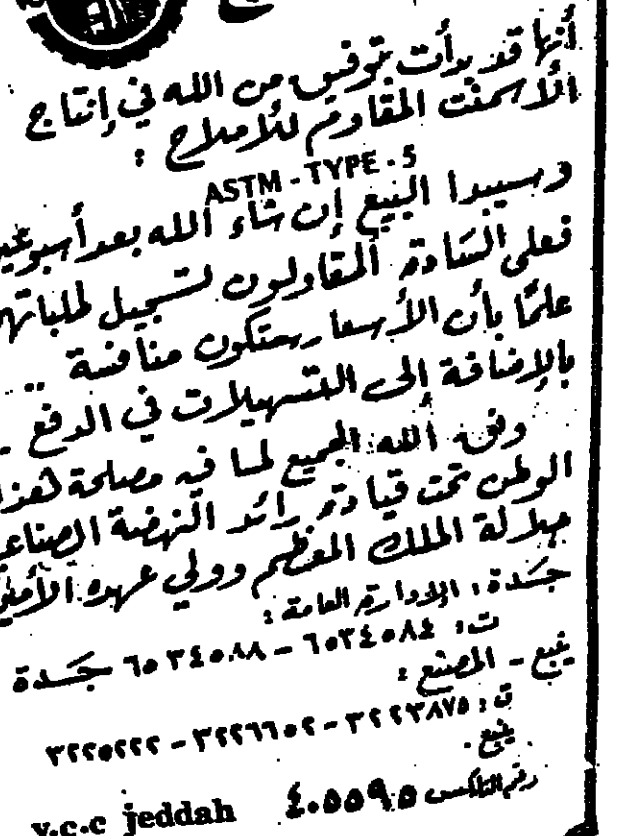 أنها قد بدأت بتوفيق من الله في إنتاج
الأسمنت المقاوم للأملاح :
ASTM - TYPE - 5
وسيبدأ البيع إن شاء الله بعد أسبوعين
فعلى السادة المقاولون لتسجيل طلباتهم
علمًا بأن الأسعار ستكون منافسة ..
بالإضافة إلى التسهيلات في الدفع -
وفق الله الجميع لما فيه مصلحة هذا
الوطن تحت قيادة رائد النهضة الصناعية
جلالة الملك المعظم وولي عهده الأمين
جـدة : الإدارة العامة :
ت : ٦٥٣٤٥٨٤ - ٦٥٣٤٥٨٨ جـدة
ينبع - المصنع :
ت : ٣٢٢٣٨٧٥ - ٣٢٢٦٦٥٢ - ٣٢٢٥٢٢٢
ينبع .
رقم التلكس ٤٠٥٥٩٥ y.c.c jeddah